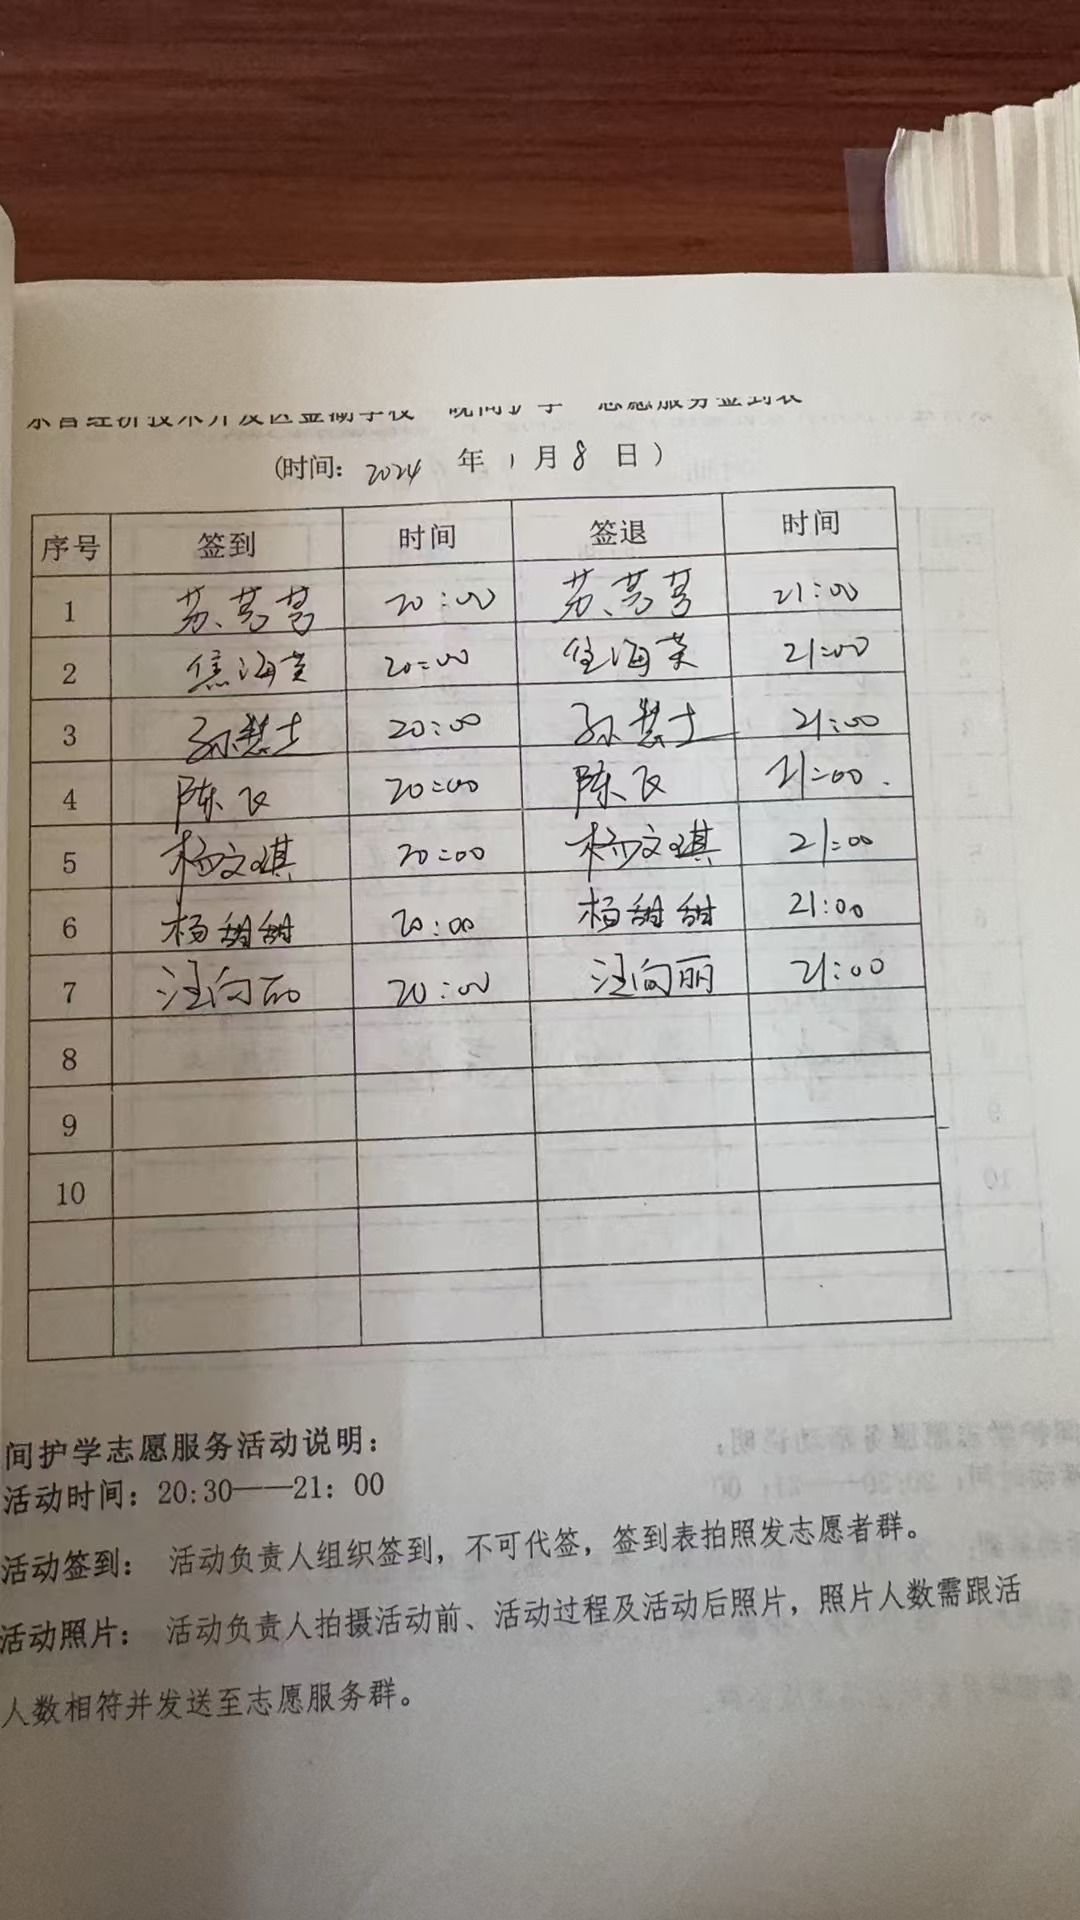 经济技术开发区金湖学校 晚间护学 志愿服务签到表
(时间: 2024 年 1 月 8 日)
序号 签到 时间 签退 时间
1 苏 20:00 苏 21:00
2 焦海英 20:00 焦海英 21:00
3 孙慧士 20:00 孙慧士 21:00
4 陈飞 20:00 陈飞 21:00.
5 杨文琪 20:00 杨文琪 21:00
6 杨甜甜 20:00 杨甜甜 21:00
7 汪向丽 20:00 汪向丽 21:00
8
9
10
间护学志愿服务活动说明:
活动时间: 20:30——21: 00
活动签到: 活动负责人组织签到，不可代签，签到表拍照发志愿者群。
活动照片: 活动负责人拍摄活动前、活动过程及活动后照片，照片人数需跟活
人数相符并发送至志愿服务群。